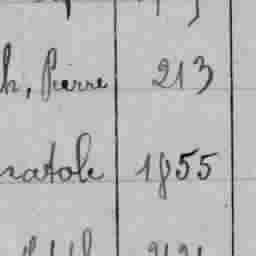 h, Pierre 213
natole 1855